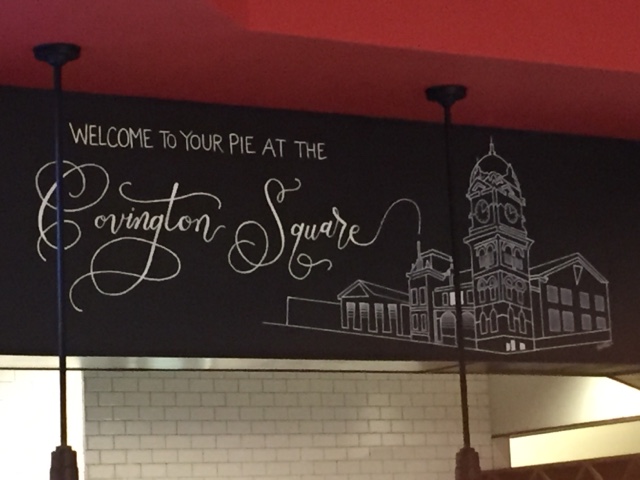 WELCOME TO YOUR PIE AT THE
Covington Square